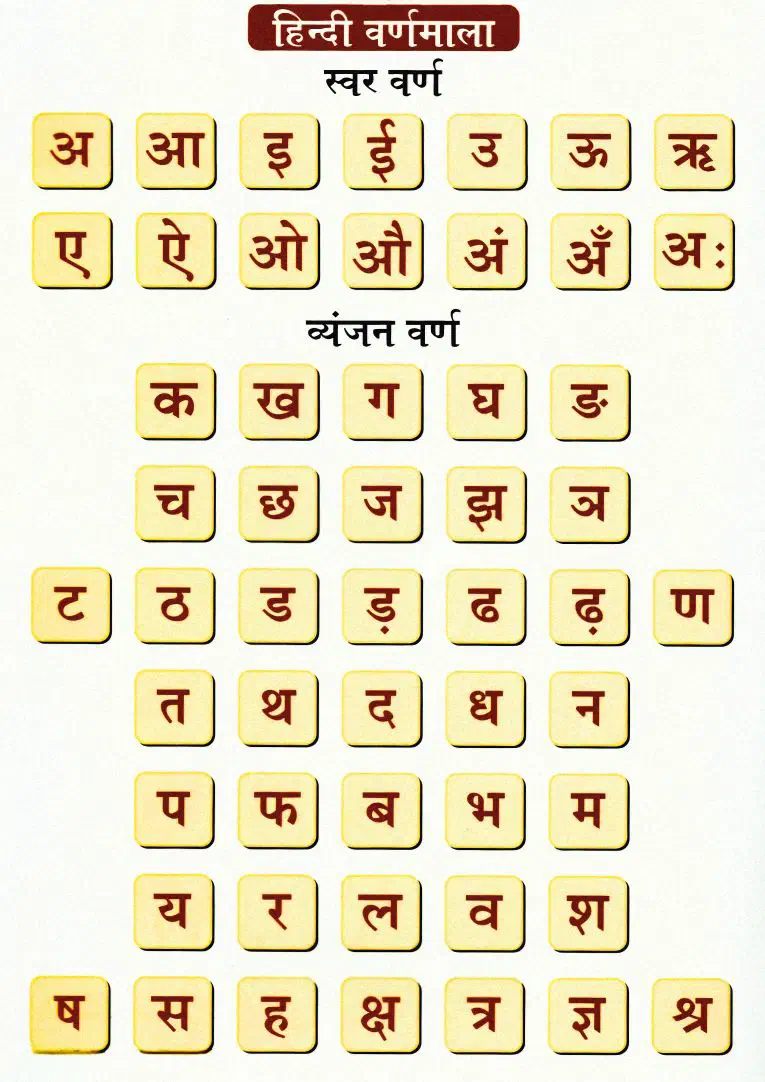 हिन्दी वर्णमाला
स्वर वर्ण
अ आ इ ई उ ऊ ऋ
ए ऐ ओ औ अं अँ अः
व्यंजन वर्ण
क ख ग घ ङ
च छ ज झ ञ
ट ठ ड ड़ ढ ढ़ ण
त थ द ध न
प फ ब भ म
य र ल व श
ष स ह क्ष त्र ज्ञ श्र